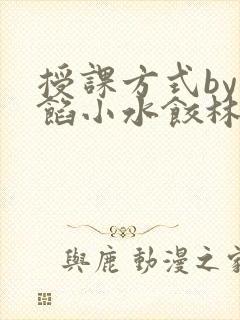 授課方式by
餡小水餃林
與鹿 動漫之家